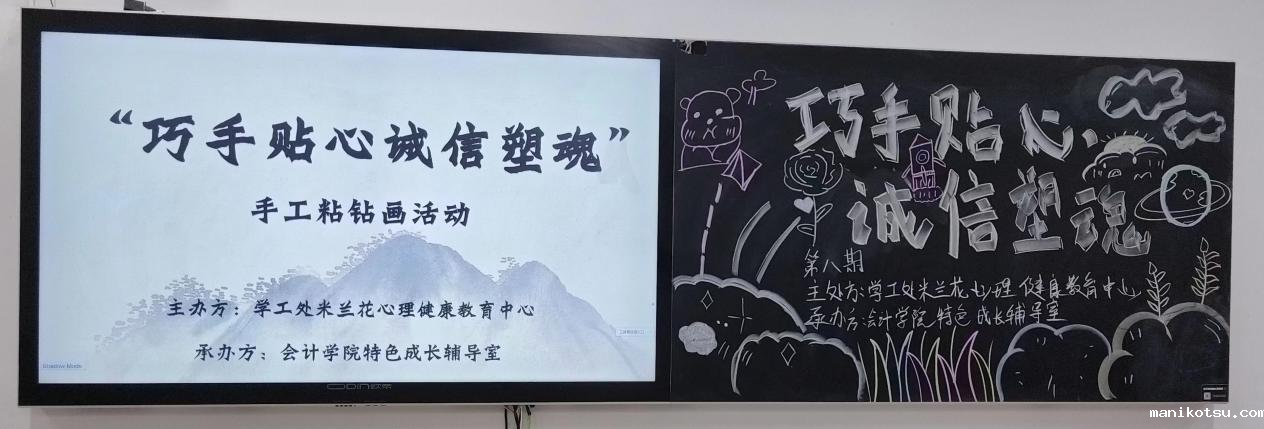 “巧手贴心诚信塑魂”
手工粘钻画活动
主办方：学工处米兰花心理健康教育中心
承办方：会计学院特色成长辅导室
Shadow Mode
ODin欧帝
巧手贴心
诚信塑魂
第八期
主处方:学工处米兰花心理健康教育中心
承办方:会计学院特色成长辅导室
manikotsu.com